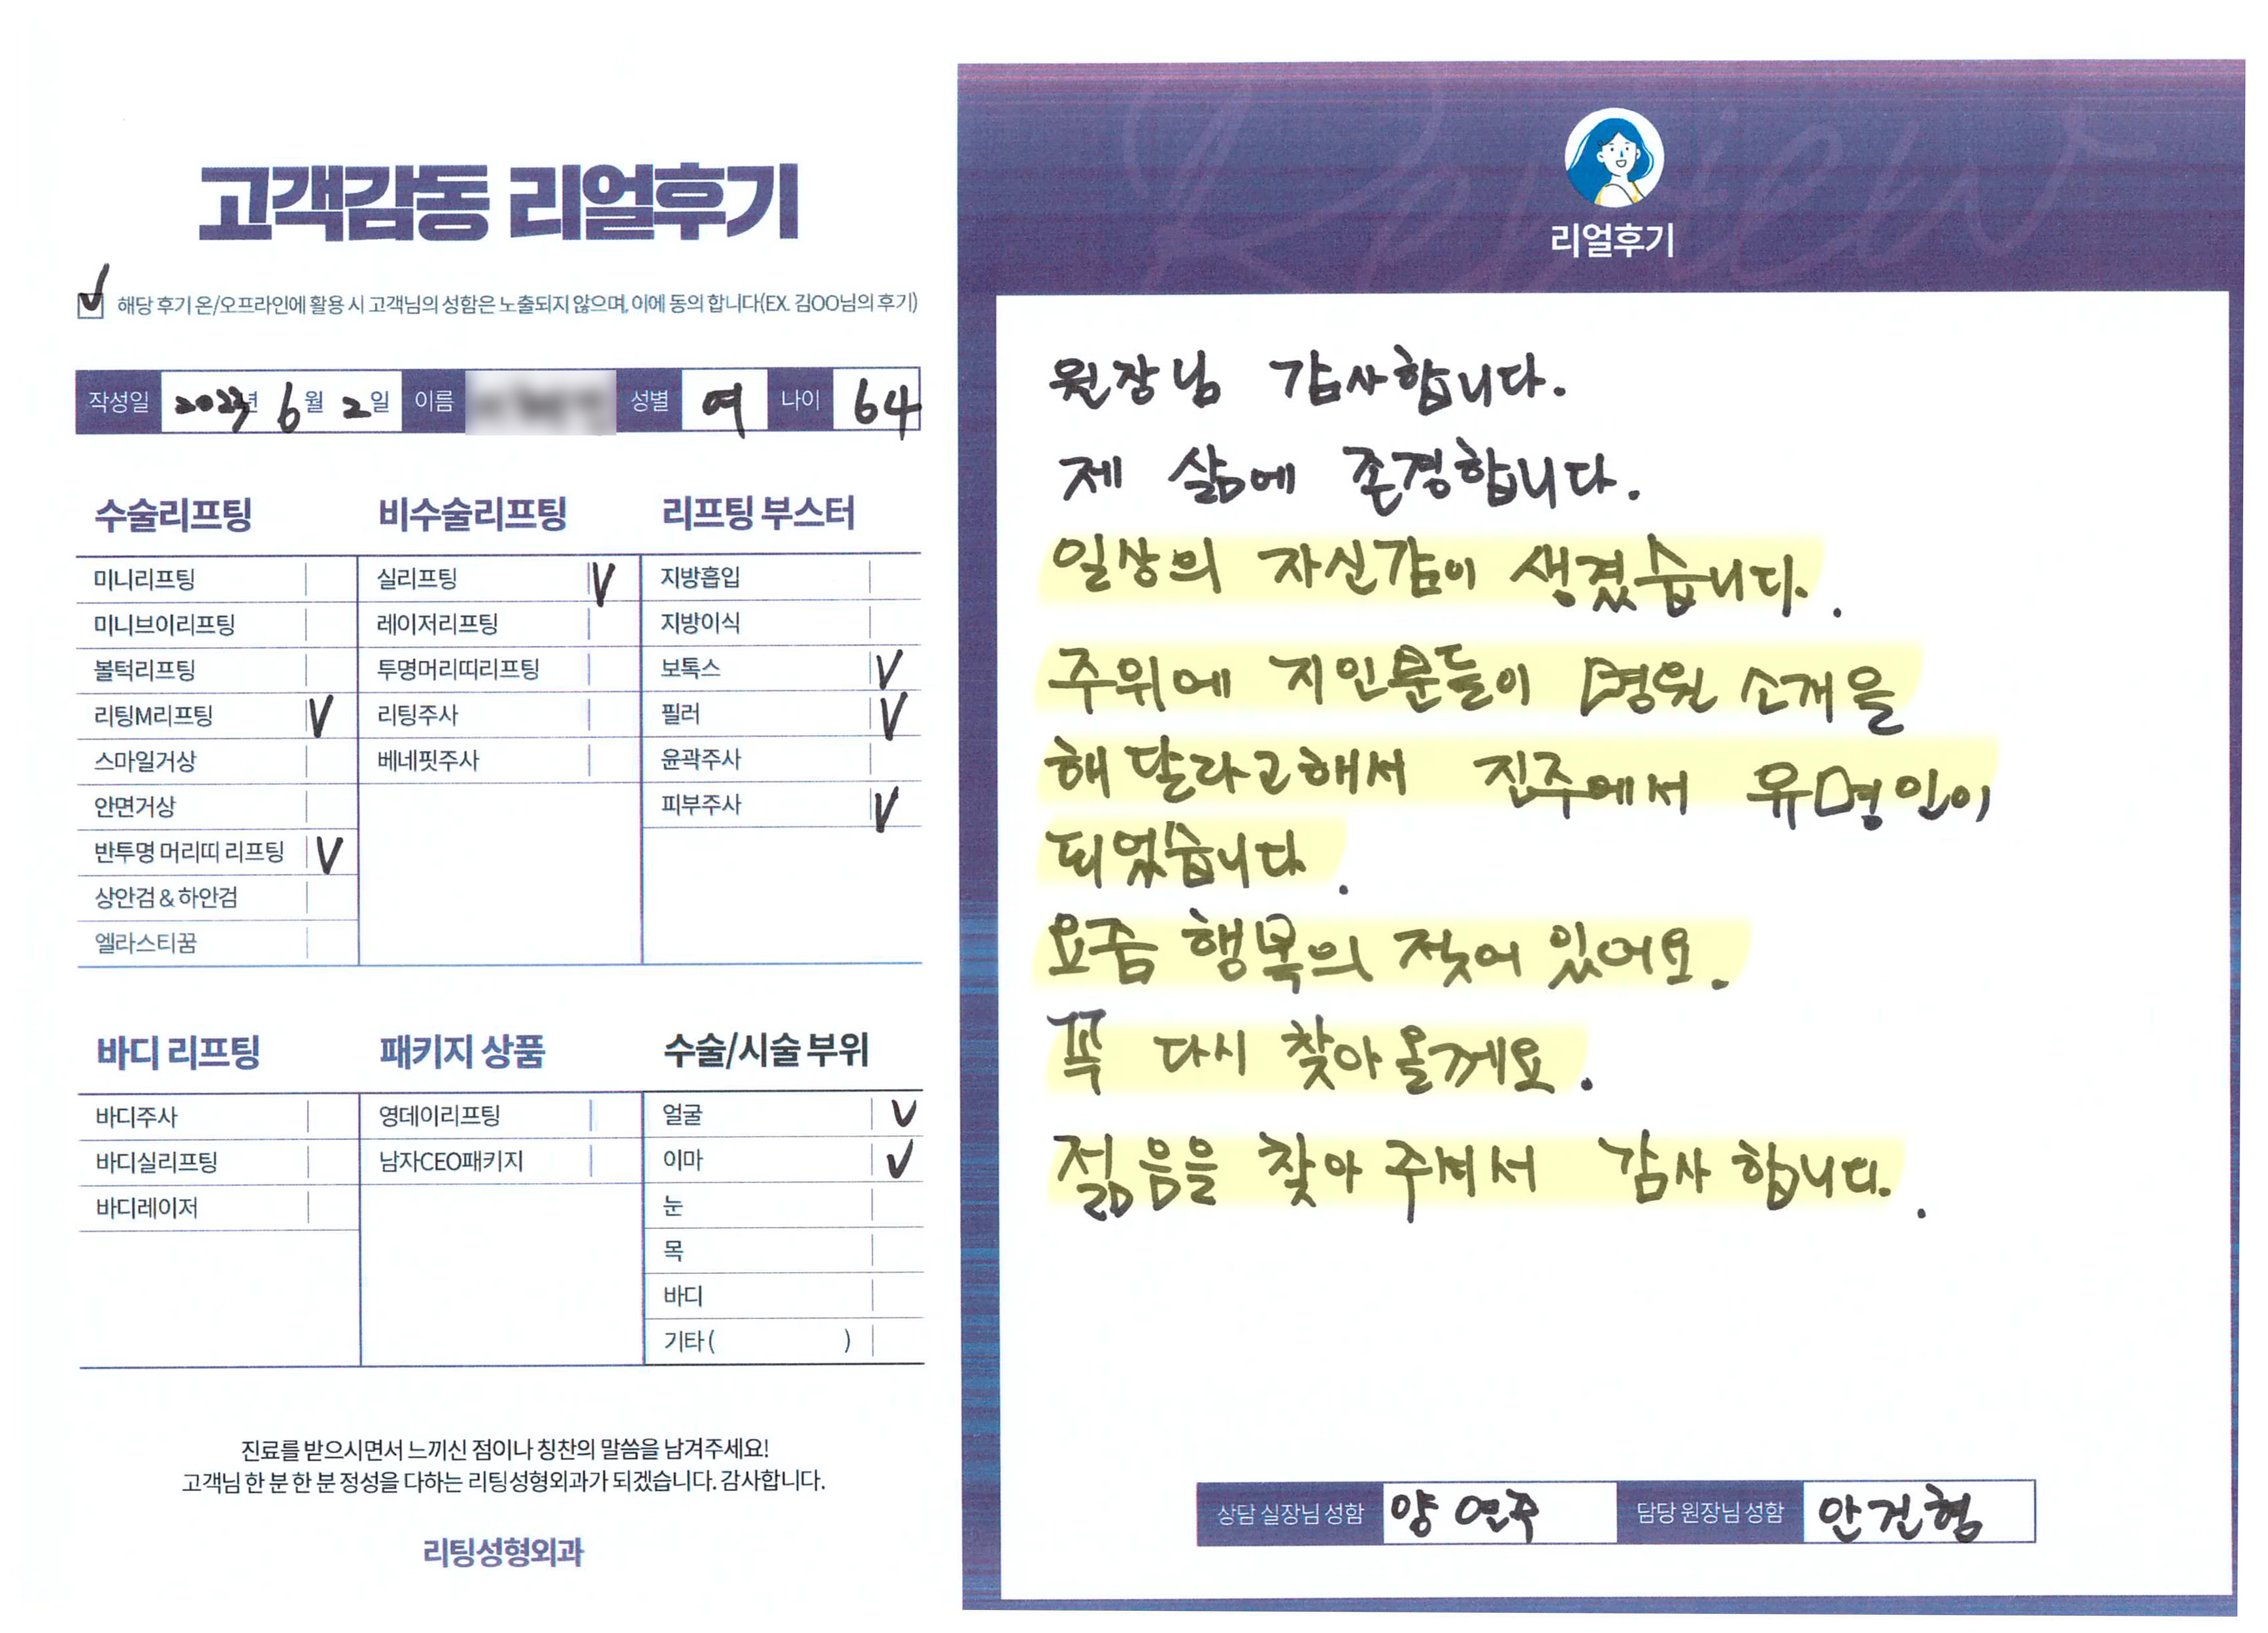 고객감동 리얼후기
V 해당 후기 온/오프라인에 활용 시 고객님의 성함은 노출되지 않으며, 이에 동의 합니다(EX. 김OO님의 후기)
작성일 2023년 6월 2일 이름 성별 여 나이 64
수술리프팅 비수술리프팅 리프팅 부스터
미니리프팅 실리프팅 V 지방흡입
미니브이리프팅 레이저리프팅 지방이식
볼턱리프팅 투명머리띠리프팅 보톡스 V
리팅M리프팅 V 리팅주사 필러 V
스마일거상 베네핏주사 윤곽주사
안면거상 피부주사 V
반투명 머리띠 리프팅 V
상안검 & 하안검
엘라스티꿈
바디 리프팅 패키지 상품 수술/시술 부위
바디주사 영데이리프팅 얼굴 V
바디실리프팅 남자CEO패키지 이마 V
바디레이저 눈
목
바디
기타 ( )
진료를 받으시면서 느끼신 점이나 칭찬의 말씀을 남겨주세요!
고객님 한 분 한 분 정성을 다하는 리팅성형외과가 되겠습니다. 감사합니다.
리팅성형외과
Review
리얼후기
원장님 감사합니다.
제 삶에 존경합니다.
일상의 자신감이 생겼습니다.
주위에 지인분들이 병원 소개을
해달라고해서 진주에서 유명인이
되었습니다.
요줌 행복의 젖어 있어요.
꼭 다시 찾아 올께요.
젊음을 찾아 주셔서 감사 합니다.
상담 실장님 성함 양연주 담당 원장님 성함 안건형